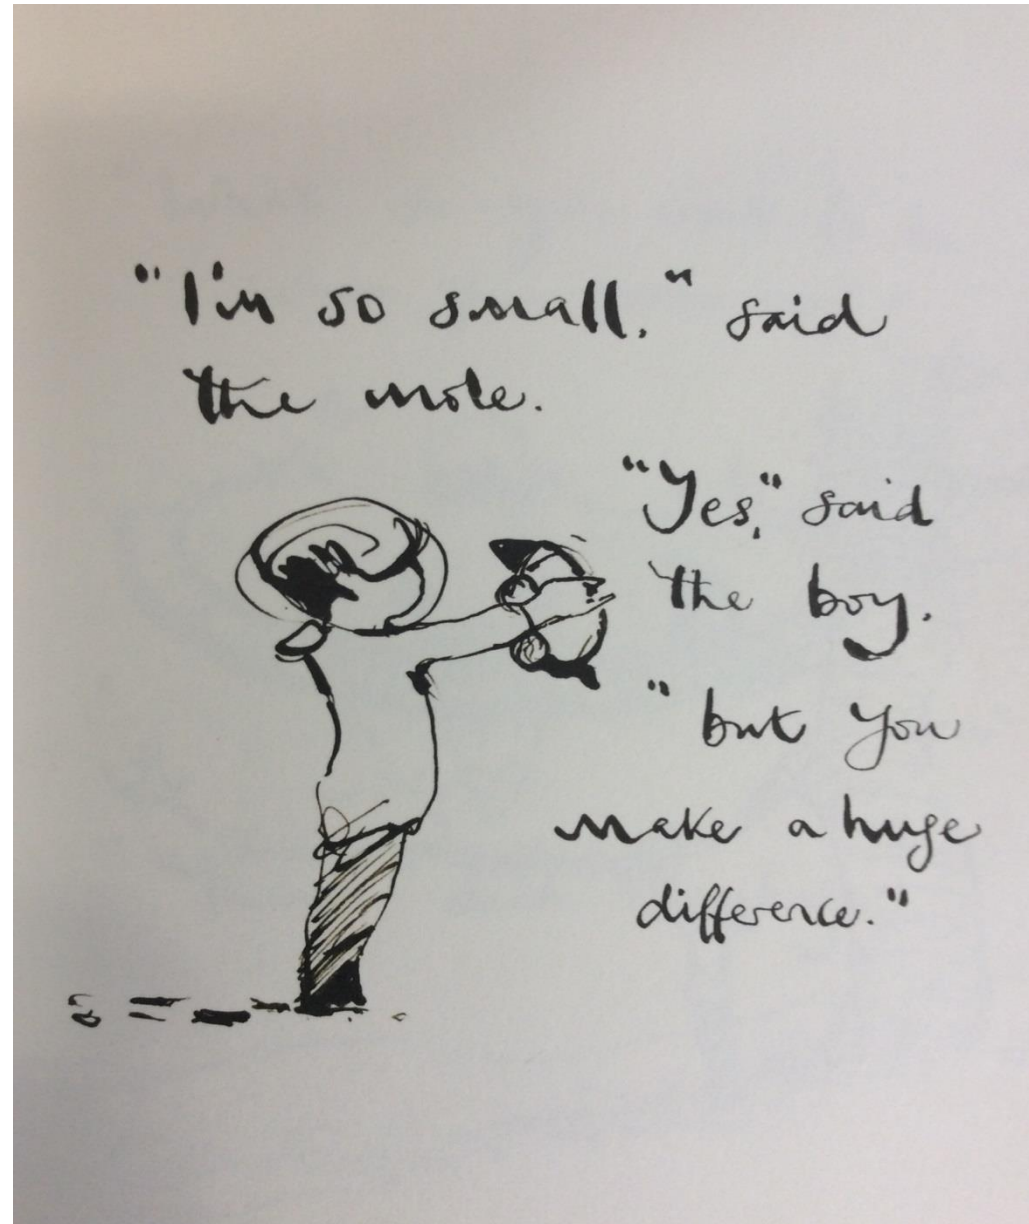 "I'm so small." said
the mole.
"Yes," said
the boy.
"but you
make a huge
difference."